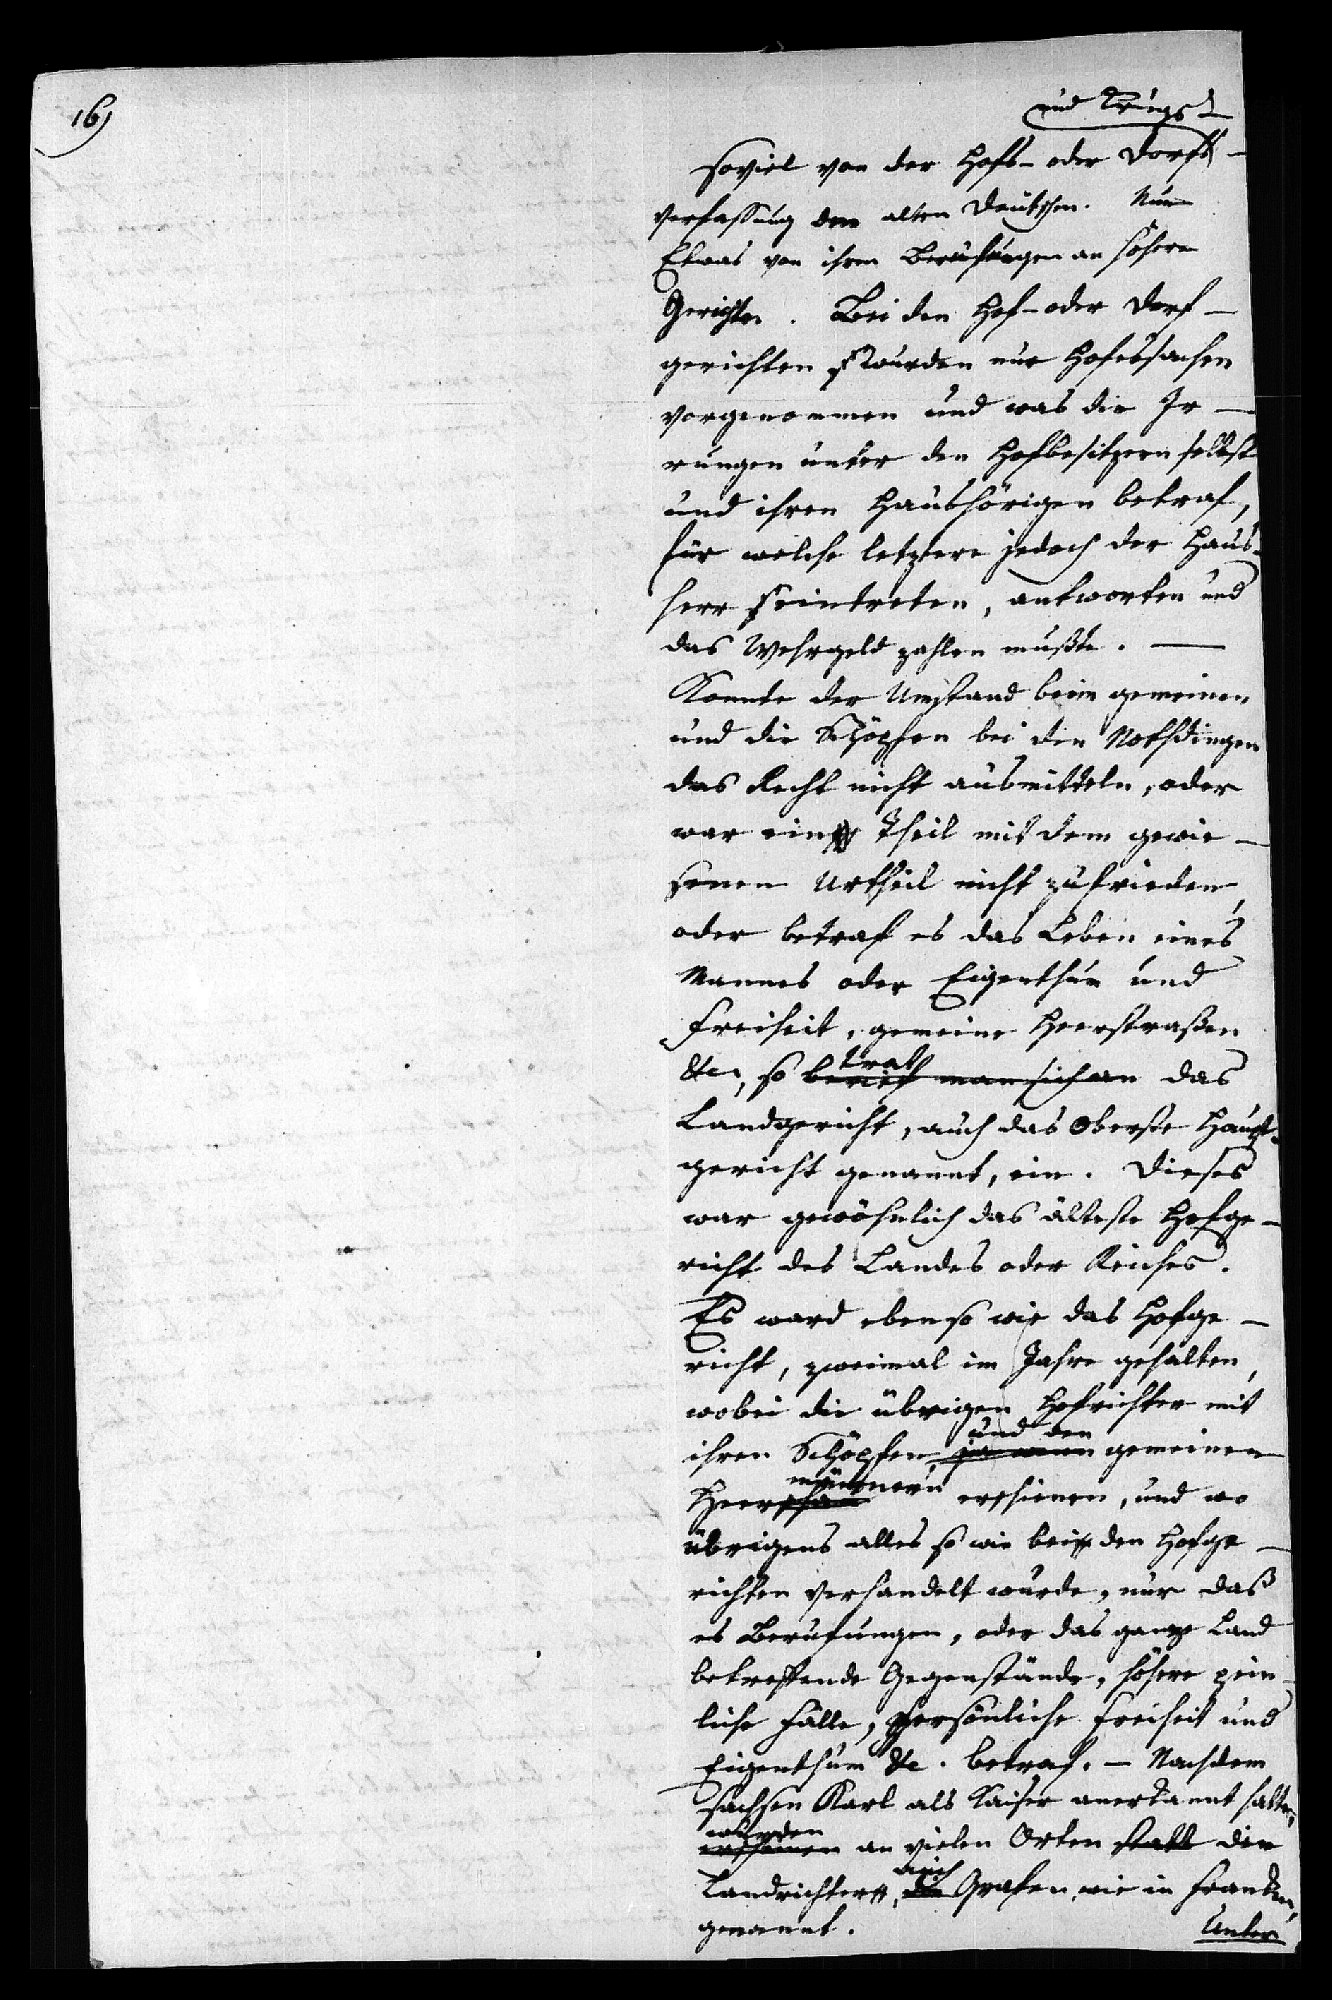 16)
und Kriegs-
Soviel von der Hofs- oder Dorfs-
verfassung der alten Deutschen. Nun
Etwas von ihren Berufungen an höhere
Gerichte. Bei den Hof- oder Dorf-
gerichten wurden nur Hofessachen
vorgenommen und was die Ir-
rungen unter den Hofbesitzern selbst
und ihren Haushörigen betraf,
für welche letztere jedoch der Haus-
herr eintreten, antworten und
das Wehrgeld zahlen mußte. —
Konnte der Umstand beim gemeinen
und die Schöpfen bei den Nothdingen
das Recht nicht ausmitteln, oder
war ein Theil mit dem gewie-
senen Urtheil nicht zufrieden,
oder betraf es das Leben eines
Mannes oder Eigenthum und
Freiheit, gemeine Heerstraßen
trat
&c., so berief man sich an das
Landgericht, auch das Oberste Haupt-
gericht genannt, ein. Dieses
war gewöhnlich das älteste Hofge-
richt des Landes oder Reiches.
Es ward ebenso wie das Hofge-
richt, zweimal im Jahre gehalten,
wobei die übrigen Hofrichter mit
und den
ihren Schöpfen, gemeinen
männern
Heer erschienen, und wo
übrigens alles so wie bei den Hofge-
richten verhandelt wurde, nur daß
es Berufungen, oder das ganze Land
betreffende Gegenstände, höhere pein-
liche Fälle, persönliche Freiheit und
Eigenthum &c. betraf. — Nachdem
Sachsen Karl als Kaiser anerkannt hatten,
wurden
erschienen an vielen Orten statt die
auch
Landrichter, die Grafen wie in Franken,
genannt.
Unter